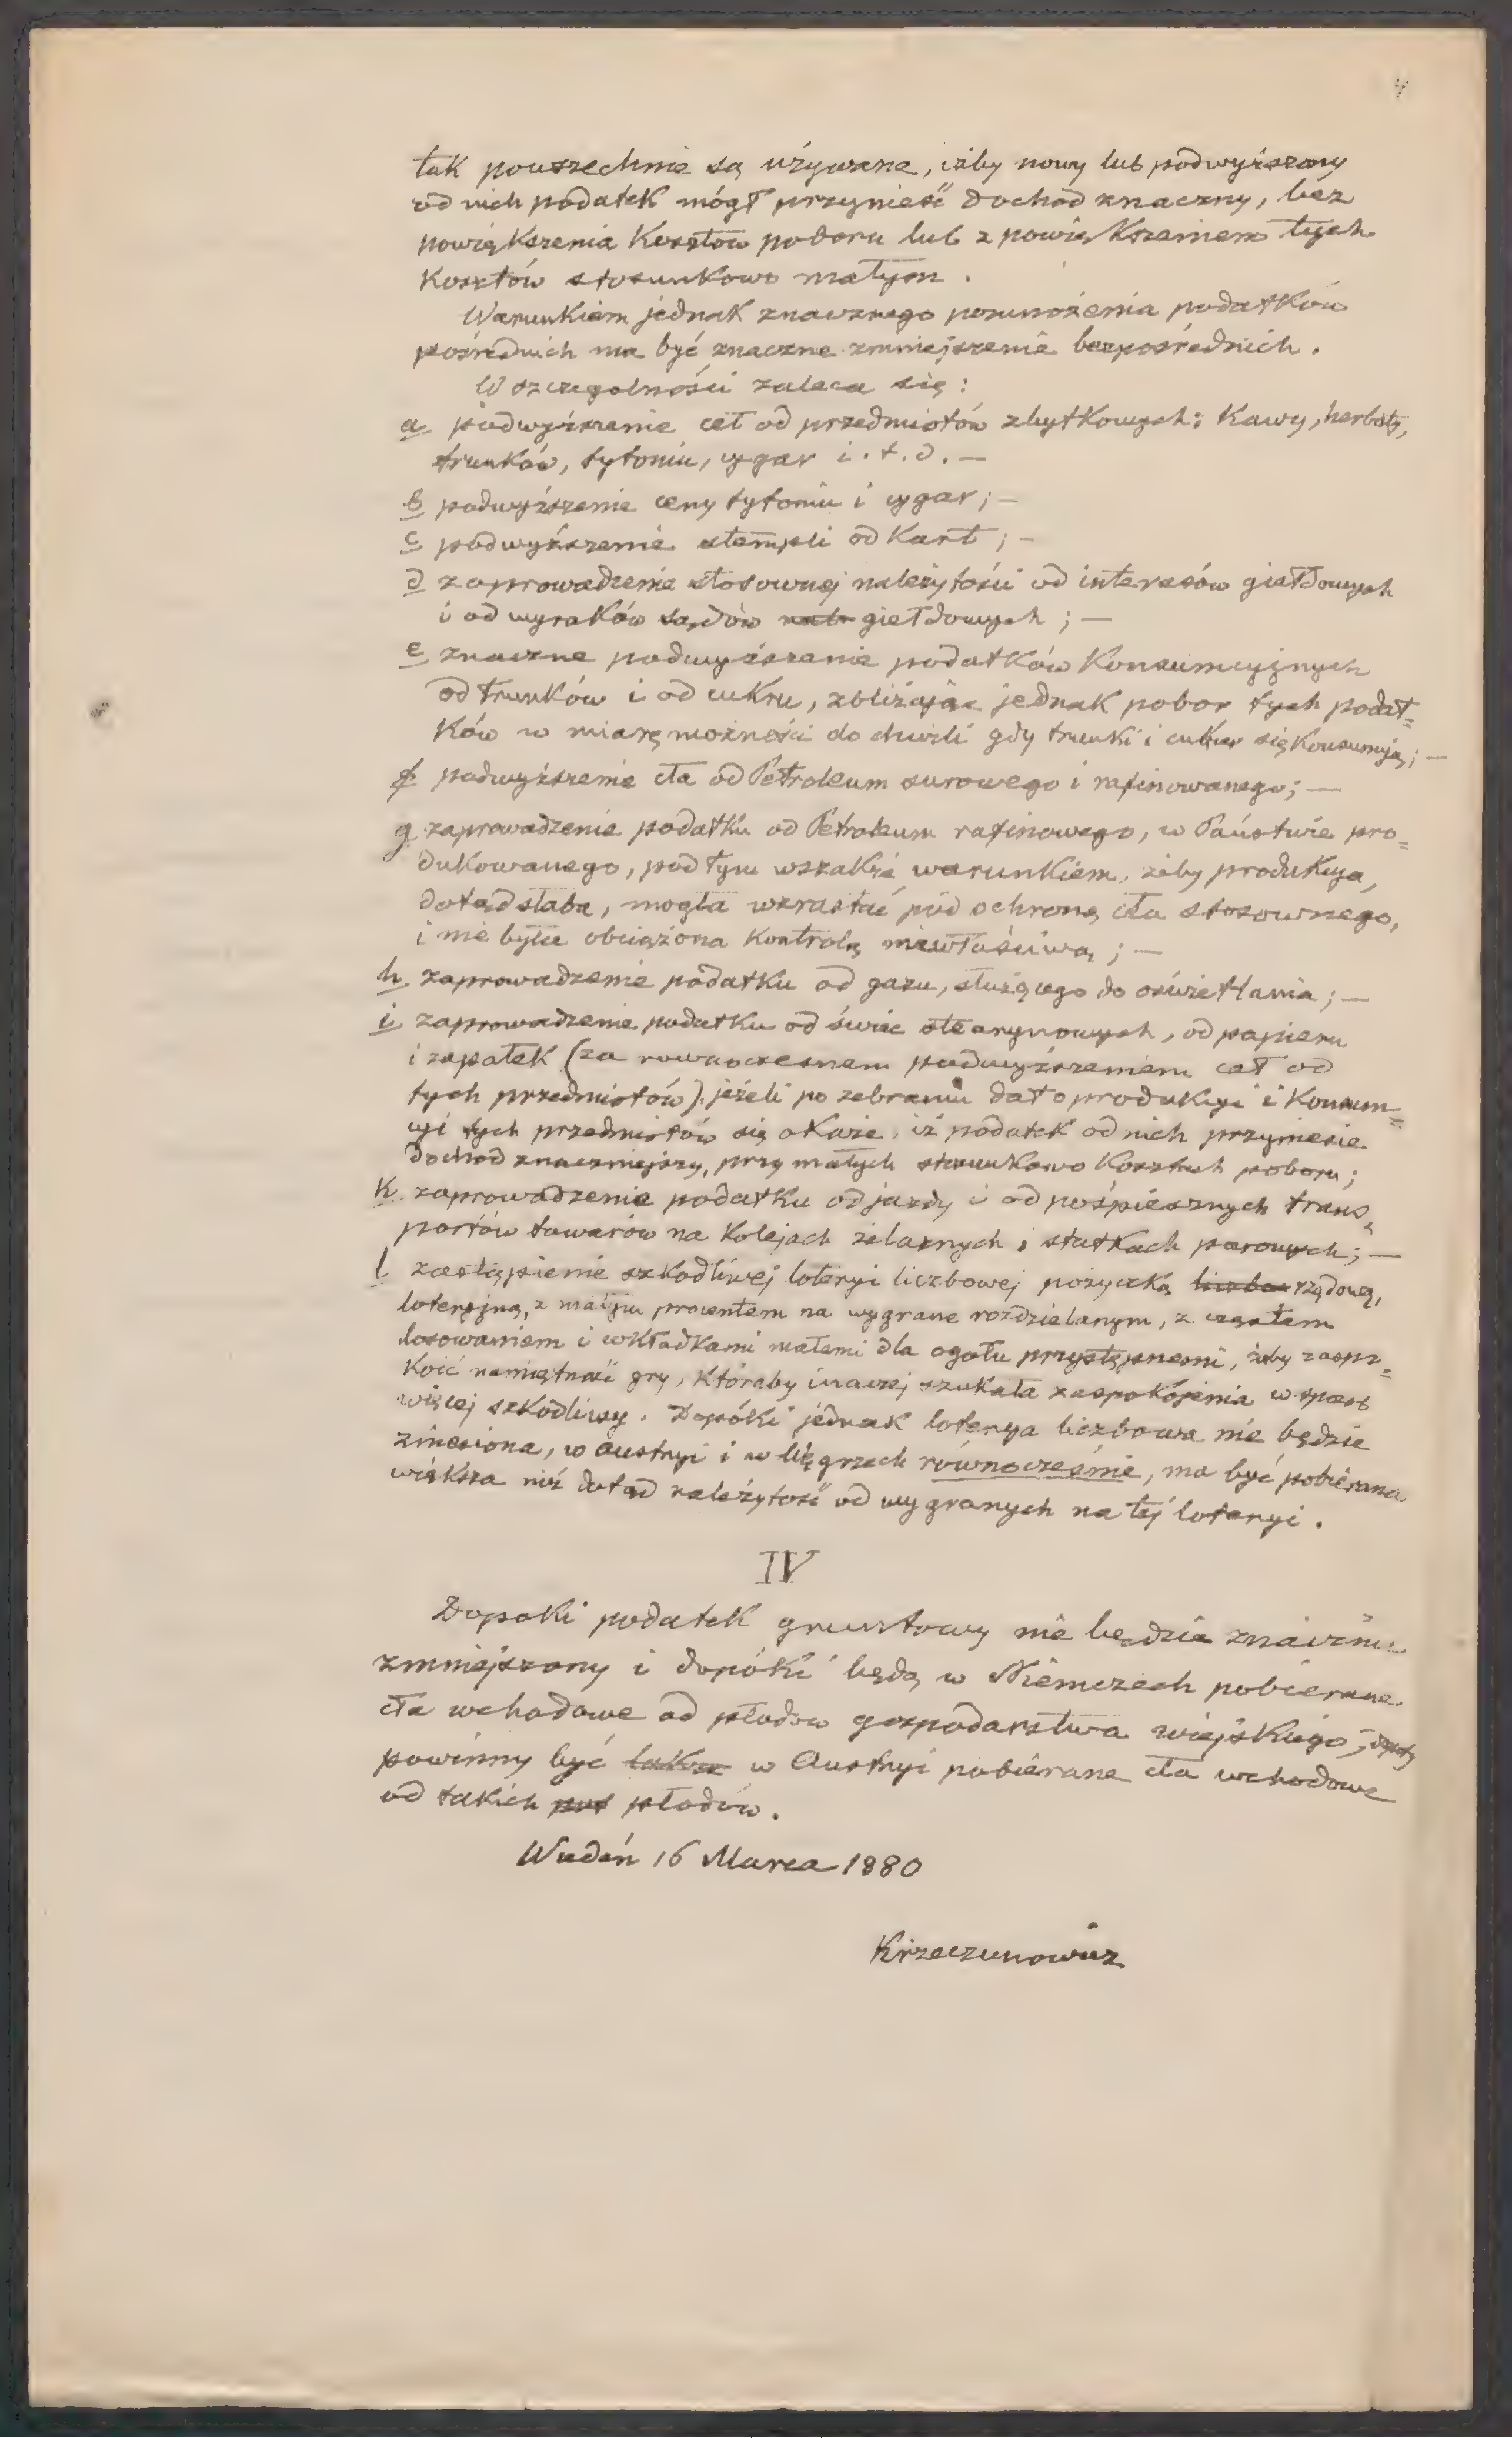 4
tak powszechnie są używane, iżby nowy lub podwyższony
od nich podatek mógł przynieść dochod znaczny, bez
powiększenia kosztow poboru lub z powiększeniem tych
kosztów stosunkowo małym.
Warunkiem jednak znacznego pomnożenia podatków
pośrednich ma być znaczne zmniejszenie bezpośrednich.
W szczegolności zaleca się:
a podwyższenie ceł od przedmiotów zbytkowych: kawy, herbaty,
trunków, tytoniu, cygar i. t. d. —
b podwyższenie ceny tytoniu i cygar; —
c podwyższenie stempli od kart; —
d zaprowadzenie stosownej należytości od interesów giełdowych
i od wyroków sądów giełdowych; —
e znaczne podwyższenie podatków konsumcyjnych
od trunków i od cukru, zbliżając jednak pobor tych podat=
ków w miarę możności do chwili gdy trunki i cukier się konsumują; —
f podwyższenie cła od Petroleum surowego i rafinowanego; —
g zaprowadzenie podatku od Petroleum rafinowego, w Państwie pro=
dukowanego, pod tym wszakże warunkiem, żeby produkcya,
dotąd słaba, mogła wzrastać pod ochroną cła stosownego,
i nie była obciążona kontrolą niewłaściwą; —
h. zaprowadzenie podatku od gazu, służącego do oświetlania; —
i zaprowadzenie podatku od świec stearynowych, od papieru
i zapałek (za rownoczesnem podwyższeniem ceł od
tych przedmiotów) jeżeli po zebraniu dat o produkcyi i konsum=
cyi tych przedmiotów się okaże, iż podatek od nich przyniesie
dochod znaczniejszy, przy małych stosunkowo kosztach poboru;
k. zaprowadzenie podatku od jazdy i od pośpiesznych trans=
portów towarów na kolejach żelaznych i statkach parowych; —
l zastąpienie szkodliwej loteryi liczbowej pożyczką rządową,
loteryjną, z małym procentem na wygrane rozdzielanym, z częstem
losowaniem i wkładkami małemi dla ogołu przystępnemi, żeby zaspo=
koić namiętność gry, któraby inaczej szukała zaspokojenia w sposob
więcej szkodliwy. Dopóki jednak loterya liczbowa nie będzie
zniesiona, w Austryi i w Węgrzech równocześnie, ma być pobierana
większa niż dotąd należytość od wygranych na tej loteryi.
IV
Dopoki podatek gruntowy nie będzie znacznie
zmniejszony i dopóki będą w Niemczech pobierane
cła wchodowe od płodow gospodarstwa wiejskiego, dopoty
powinny być w Austryi pobierane cła wchodowe
od takich płodów.
Wiedeń 16 Marca 1880
Krzeczunowicz